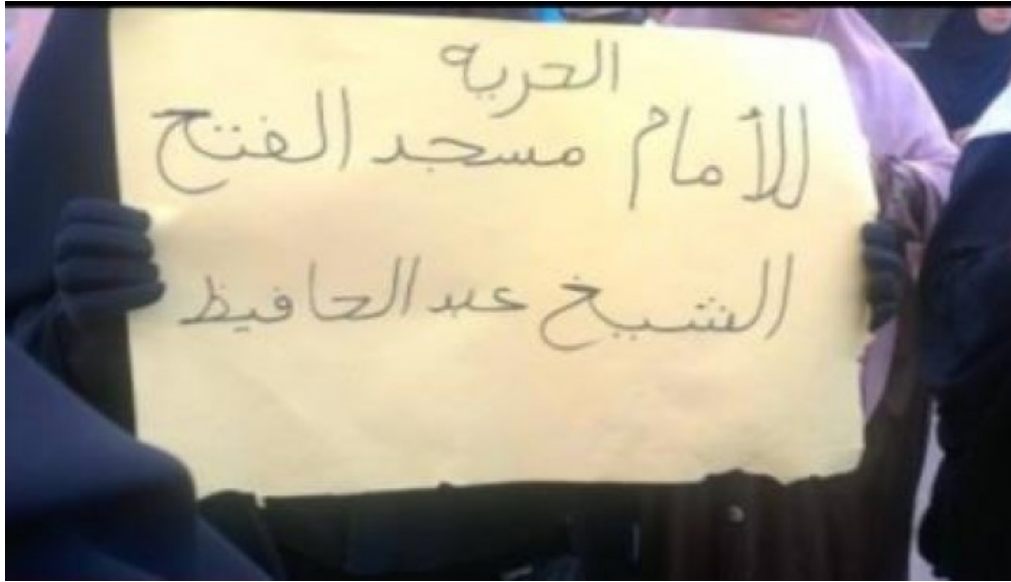 الحريه
للأمام مسجد الفتح
الشيخ عبد الحافيظ